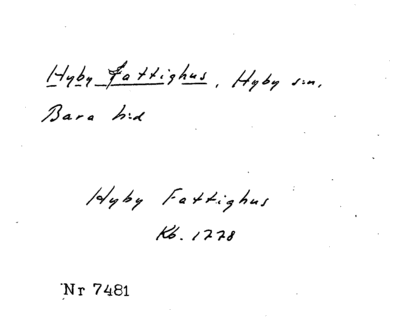 Hyby Fattighus, Hyby s:n,
Bara h:d
Hyby Fattighus
Kb. 1778
Nr 7481